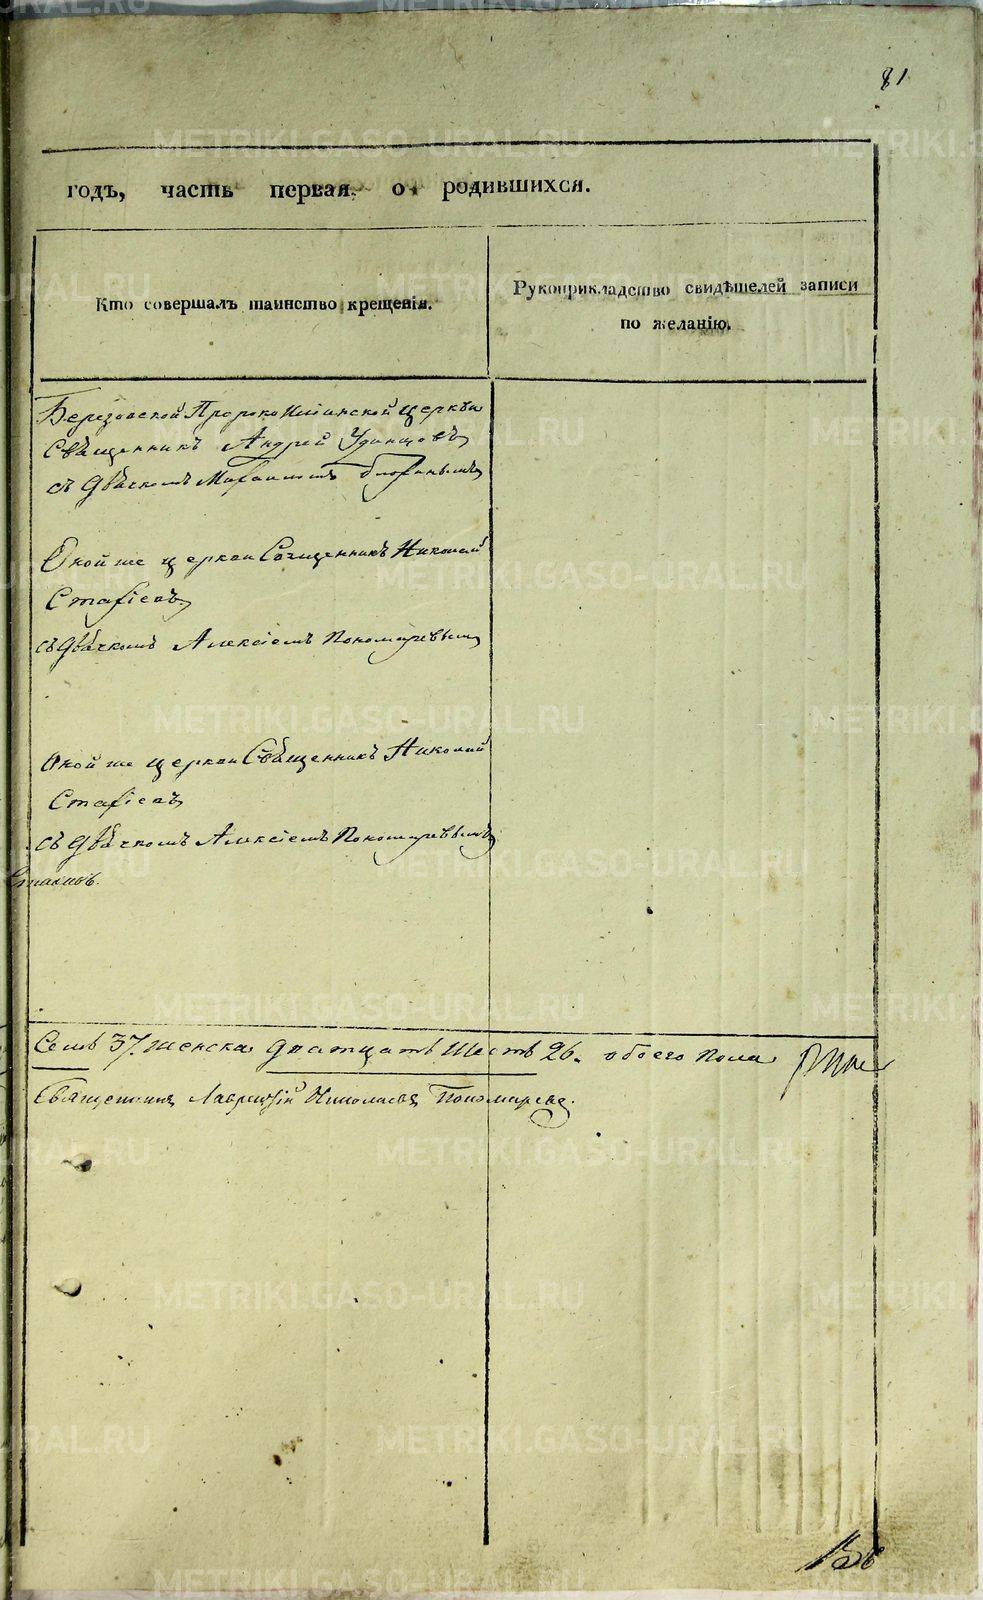 81
годъ, часть первая о родившихся.
Кто совершалъ таинство крещенія.
Рукоприкладство свидѣтелей записи
по желанію.
Березовской Пророко Илiинской церкви
Священникъ Андрей Удинцовъ
съ Дьячкомъ Михаиломъ
Оной же церкви Священникъ Николай
Стафіевъ
съ Дьячкомъ Алексіемъ Пономаревымъ
Оной же церкви Священникъ Николай
Стафіевъ
съ Дьячкомъ Алексіемъ Пономаревымъ
Семь 37. женска дватцать шесть 26. обоего пола
Священникъ Николаевъ Пономаревъ.
METRIKI.GASO-URAL.RU